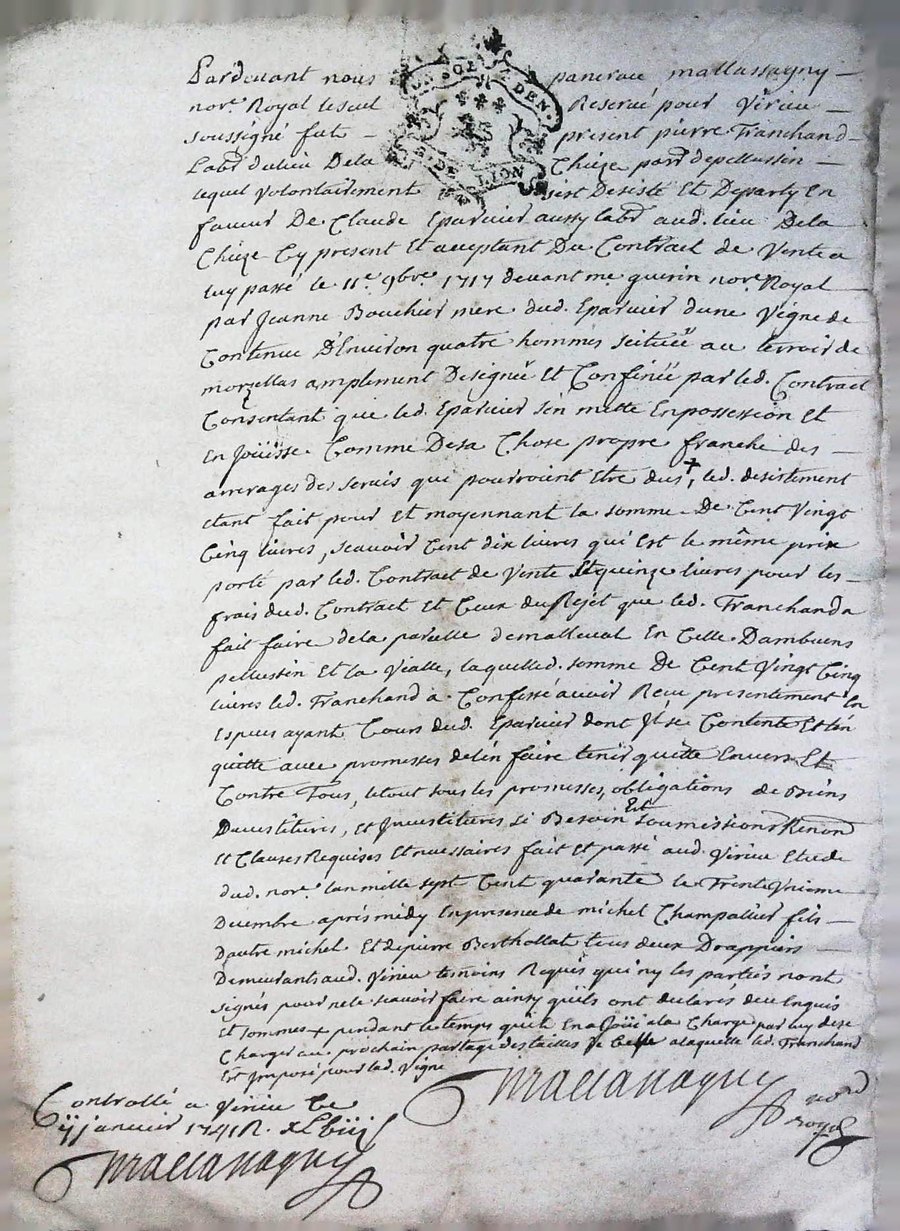 Pardevant nous pancrace mallassagny
nore. Royal le seul Reservé pour Virieu
soussigné fut present pierre Franchand
Labr. du lieu Dela Chieze parr. de pellussin
lequel volontairement sest Desisté Et Departy En
faveur De Claude Eparvier aussy labr. aud. lieu Dela
Chieze Cy present Et acceptant Du Contract de Vente a
luy passé le 11e. 9bre. 1717 devant me guerin nore. Royal
par Jeanne Bouchier mere dud. Eparvier dune Vigne de
Contenue D'Environ quatre hommés scituée au terroir de
morzellas amplement Designée Et Confinée par led. Contract
Consentant que led. Eparvier s'en mette En possession Et
En Joüisse. Comme De sa Chose propre franche des
arrerages des servis que pourroient Etre dus +, led. desistement
etant fait pour Et moyennant la somme De Cent Vingt
Cinq livres, scavoir Cent dix livres qui Est le même prix
porté par led. Contract de Vente Et quinze livres pour les
frais dud. Contract Et Ceux du Rejet que led. Franchand a
fait faire de la parcelle de malleval En Celle Dambuens
pellussin Et la Vialle, laquelle d. somme De Cent Vingt Cinq
livres led. Franchand a Confessé avoir Reçu presentement En
Especes ayant Cours dud. Eparvier dont Jl se Contente Et l'en
quitte avec promesses de l'en faire tenir quitte Envers Et
Contre Tous, le tout sous les promesses, obligations de Biens
Devestitures, et Jnvestitures si Besoin Est soumissions Renon
et Clauses Requises Et necessaires fait Et passé aud. Virieu Etude
dud. nore. lan mille sept Cent quarante le Trente Vnieme
Decembre aprés midy En presence de michel Champallier fils
dautre michel Et de pierre Berthollat tous deux Drappiers
Demeurants aud. Virieu temoins Requis qui ny les parties nont
signés pour ne le scavoir faire ainsy qu'ils ont declarés de ce Enquis
Et sommés + pendant le temps qu'il En a Joüi a la Charge par luy de se
Charger au prochain partage des tailles de Celle a laquelle led. Franchand
Est Jmposé pour lad. Vigne
Mallassagny nore
royal
Controllé a Virieu Ce
ij janvier 1741 R.
Mallassagny
DEN.
LION